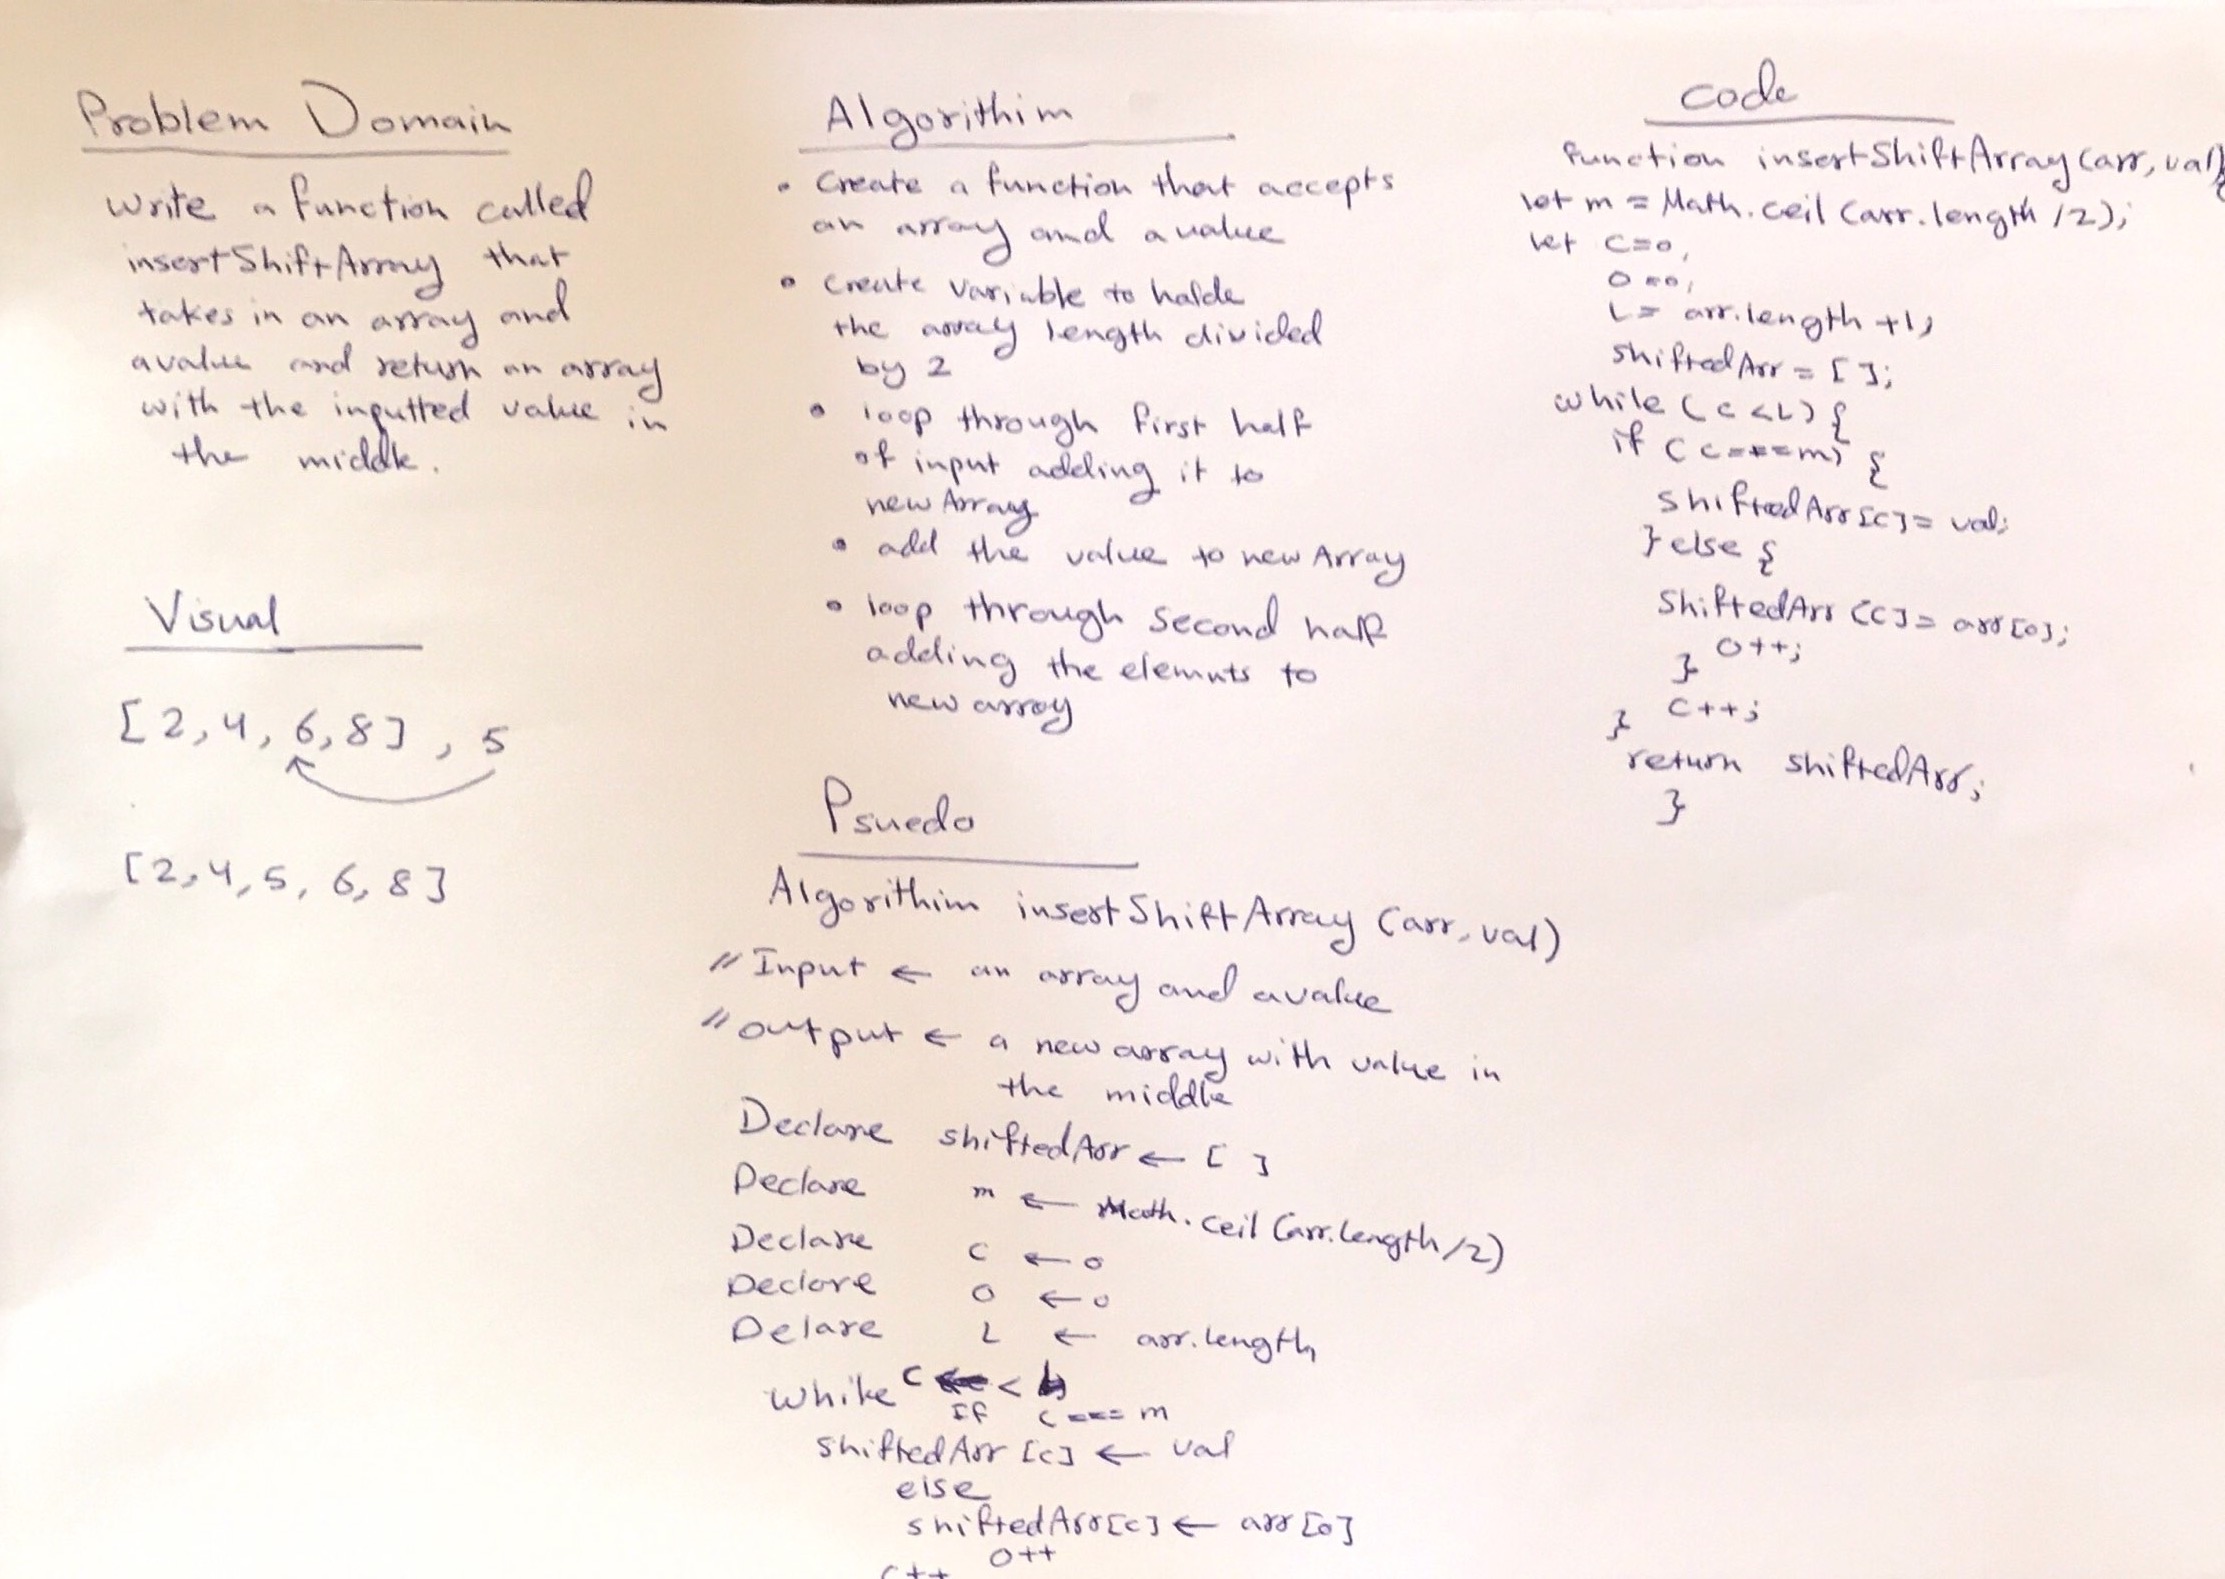 Problem Domain
write a function called
insertShiftArray that
takes in an array and
a value and return an array
with the inputted value in
the middle.
Visual
[2,4,6,8] , 5
[2,4,5,6,8]
Algorithim
• Create a function that accepts
an array and a value
• create variable to halde
the array length divided
by 2
• loop through first half
of input adding it to
new Array
• add the value to new Array
• loop through second half
adding the elemnts to
new array
Psuedo
Algorithim insertShiftArray (arr, val)
// Input ← an array and a value
// output ← a new array with value in
the middle
Declare shiftedArr ← [ ]
Declare m ← Math.ceil (arr.length/2)
Declare c ← 0
Declare o ← 0
Delare L ← arr.length
while c < L
If c === m
shiftedArr [c] ← val
else
shiftedArr[c] ← arr [o]
o++
c++
code
function insertShiftArray (arr, val){
let m = Math.ceil (arr.length /2);
let c=0,
o=0,
L= arr.length +1,
shiftedArr = [ ];
while (c<L) {
if (c===m) {
shiftedArr[c]= val;
} else {
shiftedArr [c]= arr[o];
o++;
}
c++;
}
return shiftedArr;
}